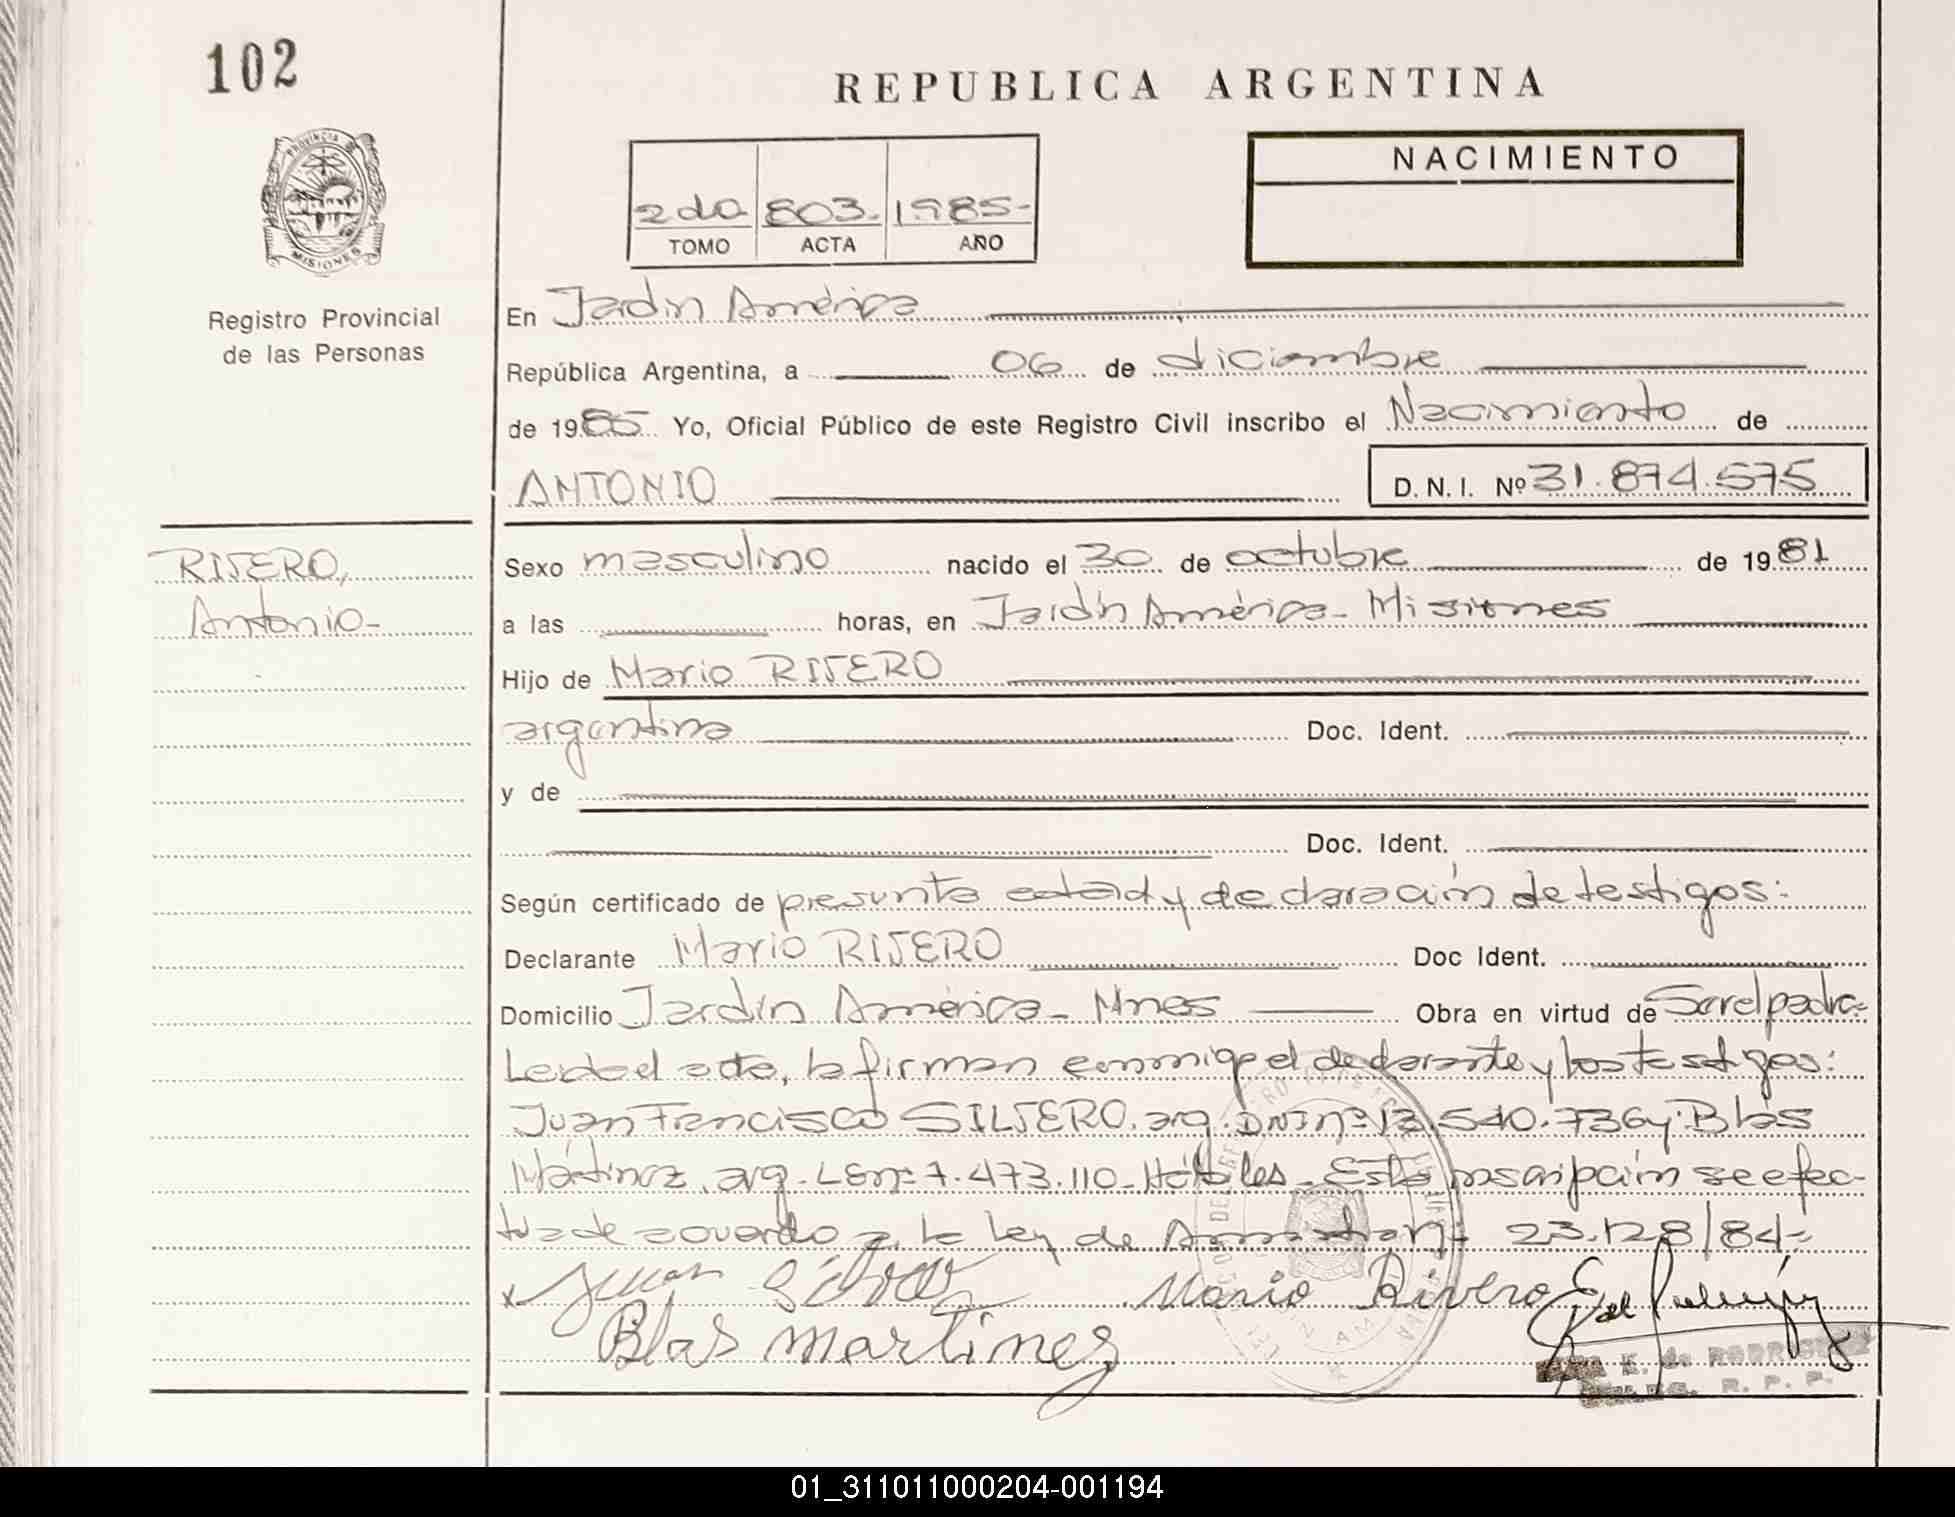 102
REPUBLICA ARGENTINA
PROVINCIA DE
MISIONES
NACIMIENTO
2do 803. 1985-
TOMO ACTA AÑO
Registro Provincial
de las Personas
En Jardín América
República Argentina, a 06 de diciembre
de 1985 Yo, Oficial Público de este Registro Civil inscribo el Nacimiento de
ANTONIO D.N.I. Nº 31.874.575
RIVERO,
Antonio-
Sexo masculino nacido el 30 de octubre de 1981
a las horas, en Jardín América - Misiones
Hijo de Mario RIVERO
argentina Doc. Ident.
y de
Doc. Ident.
Según certificado de presunta edad y declaración de testigos:
Declarante Mario RIVERO Doc Ident.
Domicilio Jardín América - Mnes Obra en virtud de Ser el padre-
Leída el acta, la firman conmigo el declarante y los testigos:
Juan Francisco SILVERO. arg. DNI nº 13.540.736 y Blas
Martínez, arg. LE nº 7.473.110 - Hábiles - Esta inscripción se efec-
túa de acuerdo a la Ley de Amnistía nº 23.128/84-
x Juan Silvero Mario Rivero
Blas martinez
E. de RODRIGUEZ
R. P. P.
01_311011000204-001194